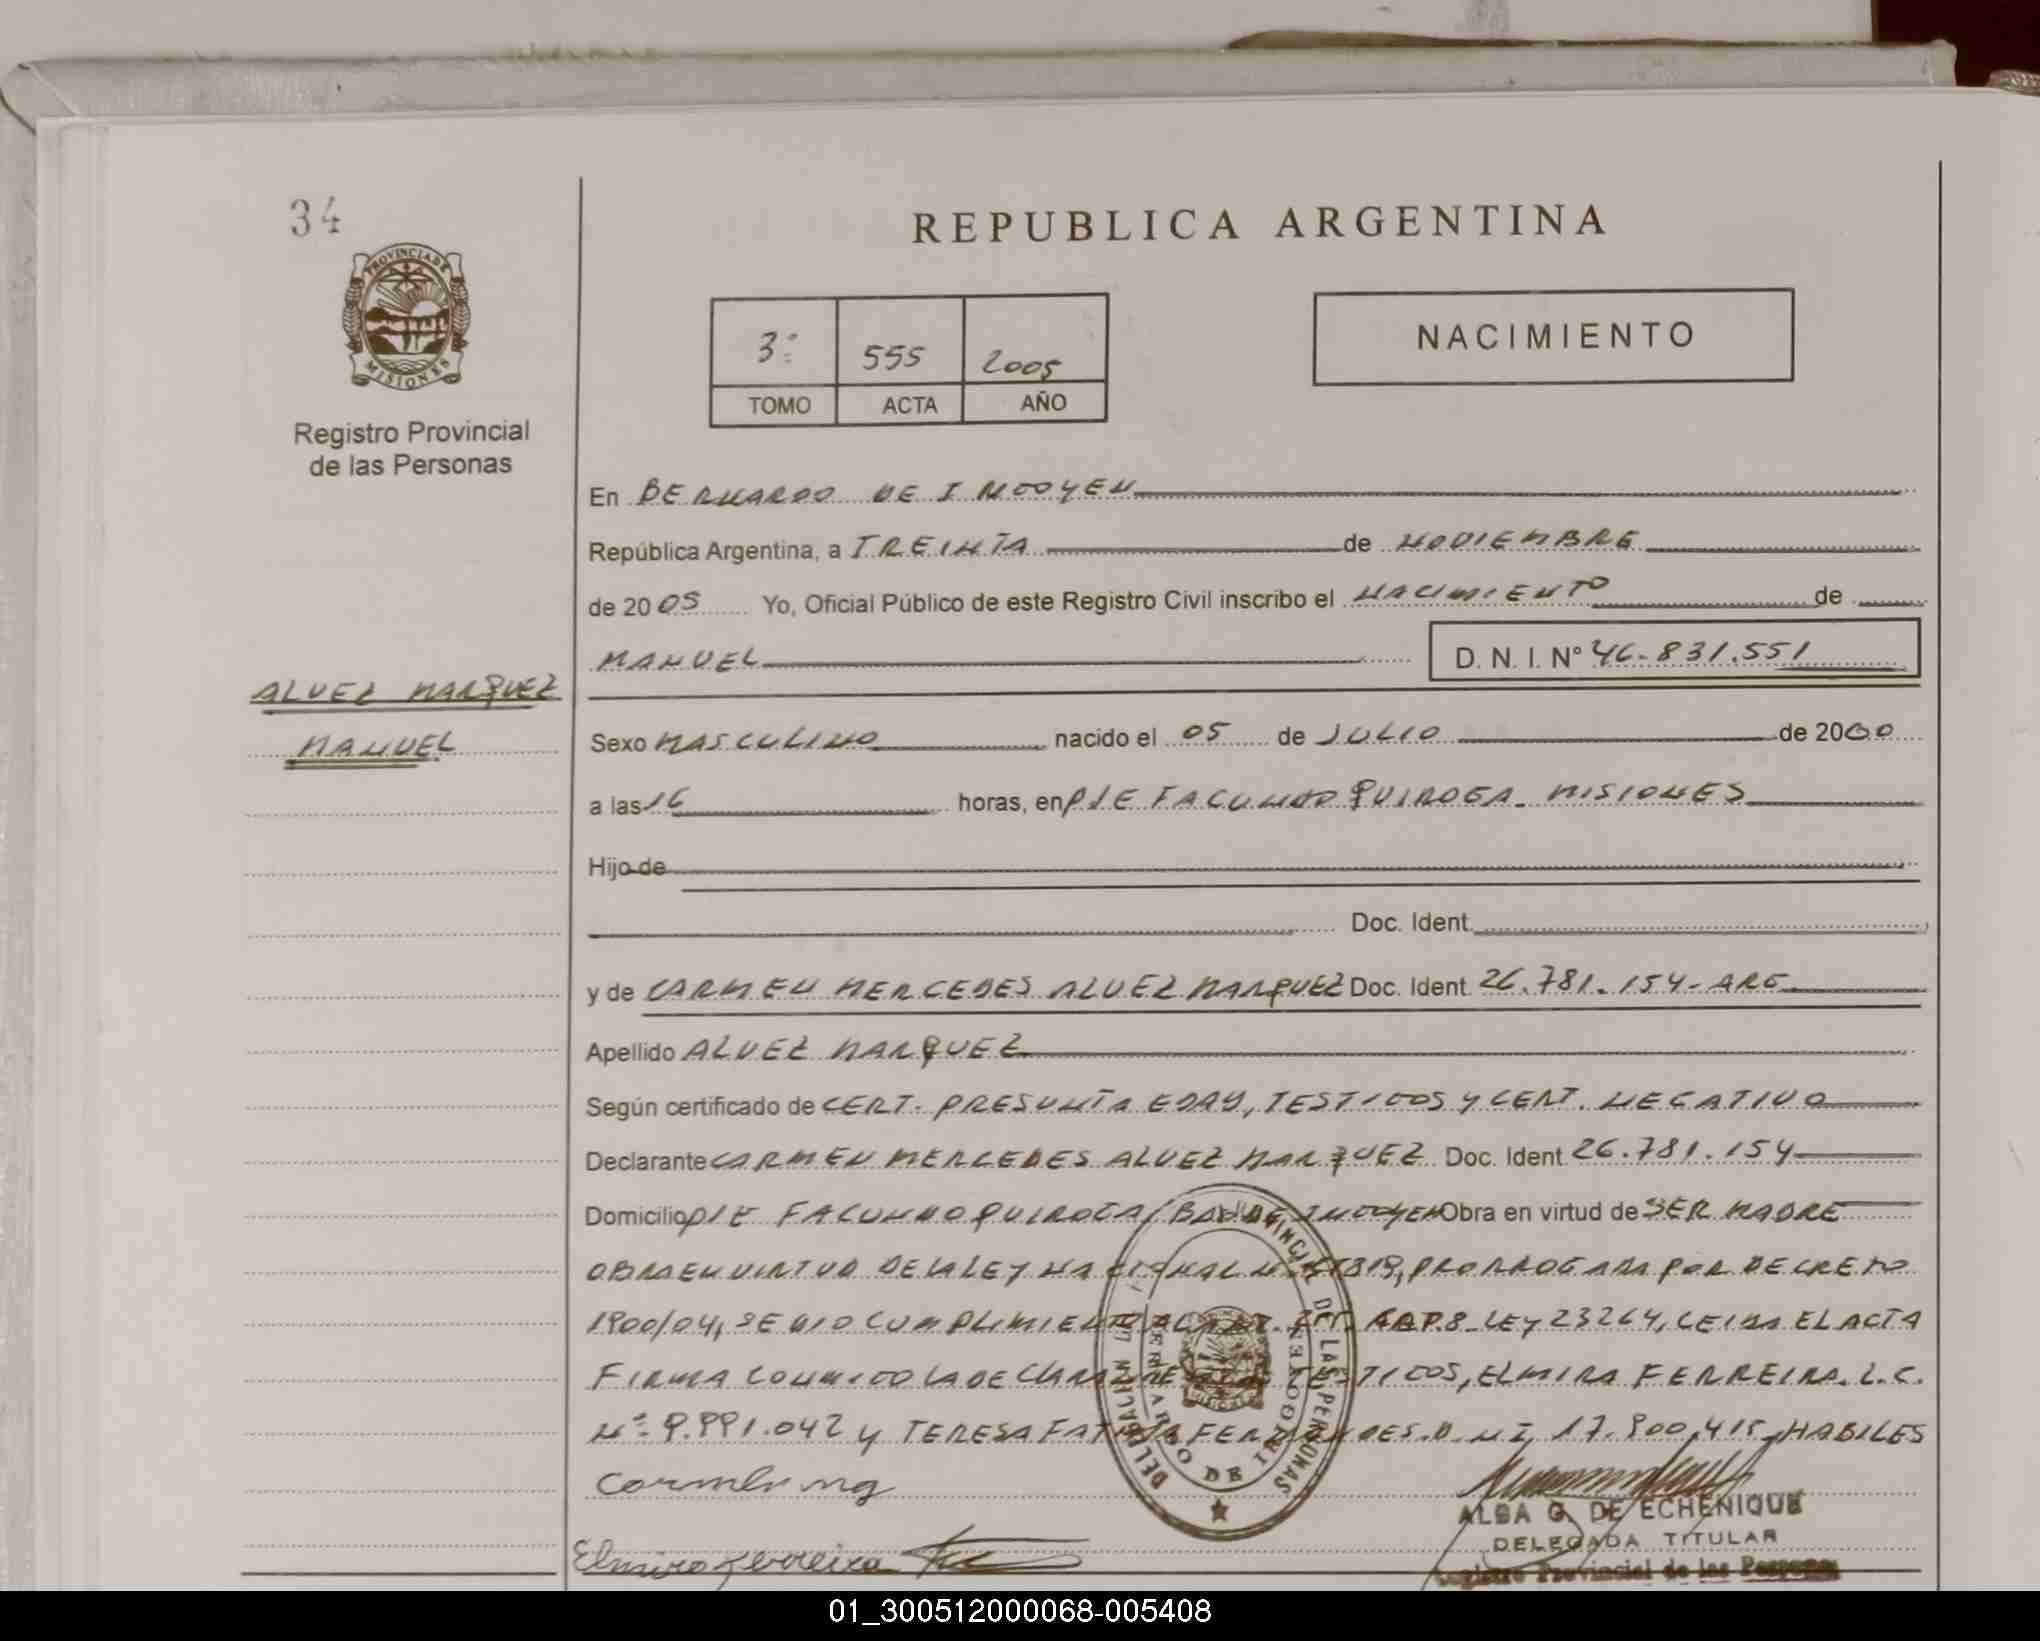 34
REPUBLICA ARGENTINA
PROVINCIA DE
MISIONES
3º 555 2005
TOMO ACTA AÑO
NACIMIENTO
Registro Provincial
de las Personas
En BERNARDO DE IRIGOYEN
República Argentina, a TREINTA de NOVIEMBRE
de 2005 Yo, Oficial Público de este Registro Civil inscribo el NACIMIENTO de
MANUEL D. N. I. Nº 46.831.551
ALVEZ MARQUEZ
MANUEL
Sexo MASCULINO nacido el 05 de JULIO de 2000
a las 16 horas, en PJE FACUNDO QUIROGA - MISIONES
Hijo de
Doc. Ident.
y de CARMEN MERCEDES ALVEZ MARQUEZ Doc. Ident. 26.781.154 - ARG
Apellido ALVEZ MARQUEZ
Según certificado de CERT. PRESUNTA EDAD, TESTIGOS Y CERT. NEGATIVO
Declarante CARMEN MERCEDES ALVEZ MARQUEZ Doc. Ident. 26.781.154
Domicilio PJE FACUNDO QUIROGA / BDO DE IRIGOYEN Obra en virtud de SER MADRE
OBRA EN VIRTUD DE LA LEY NACIONAL Nº 25819, PRORROGADA POR DECRETO
1900/04, SE DIO CUMPLIMIENTO AL ART. 8 LEY 23264, LEIDA EL ACTA
FIRMA CONMIGO LA DECLARANTE TESTIGOS, ELMIRA FERREIRA. L.C.
Nº 9.991.042 Y TERESA FATIMA FERNANDES. D.N.I. 17.900.415, HABILES
Elmira Ferreira
DELEGACION
BERNARDO DE IRIGOYEN
PROVINCIAL DE LAS PERSONAS
ALBA G. DE ECHENIQUE
DELEGADA TITULAR
Registro Provincial de las Personas
01_300512000068-005408